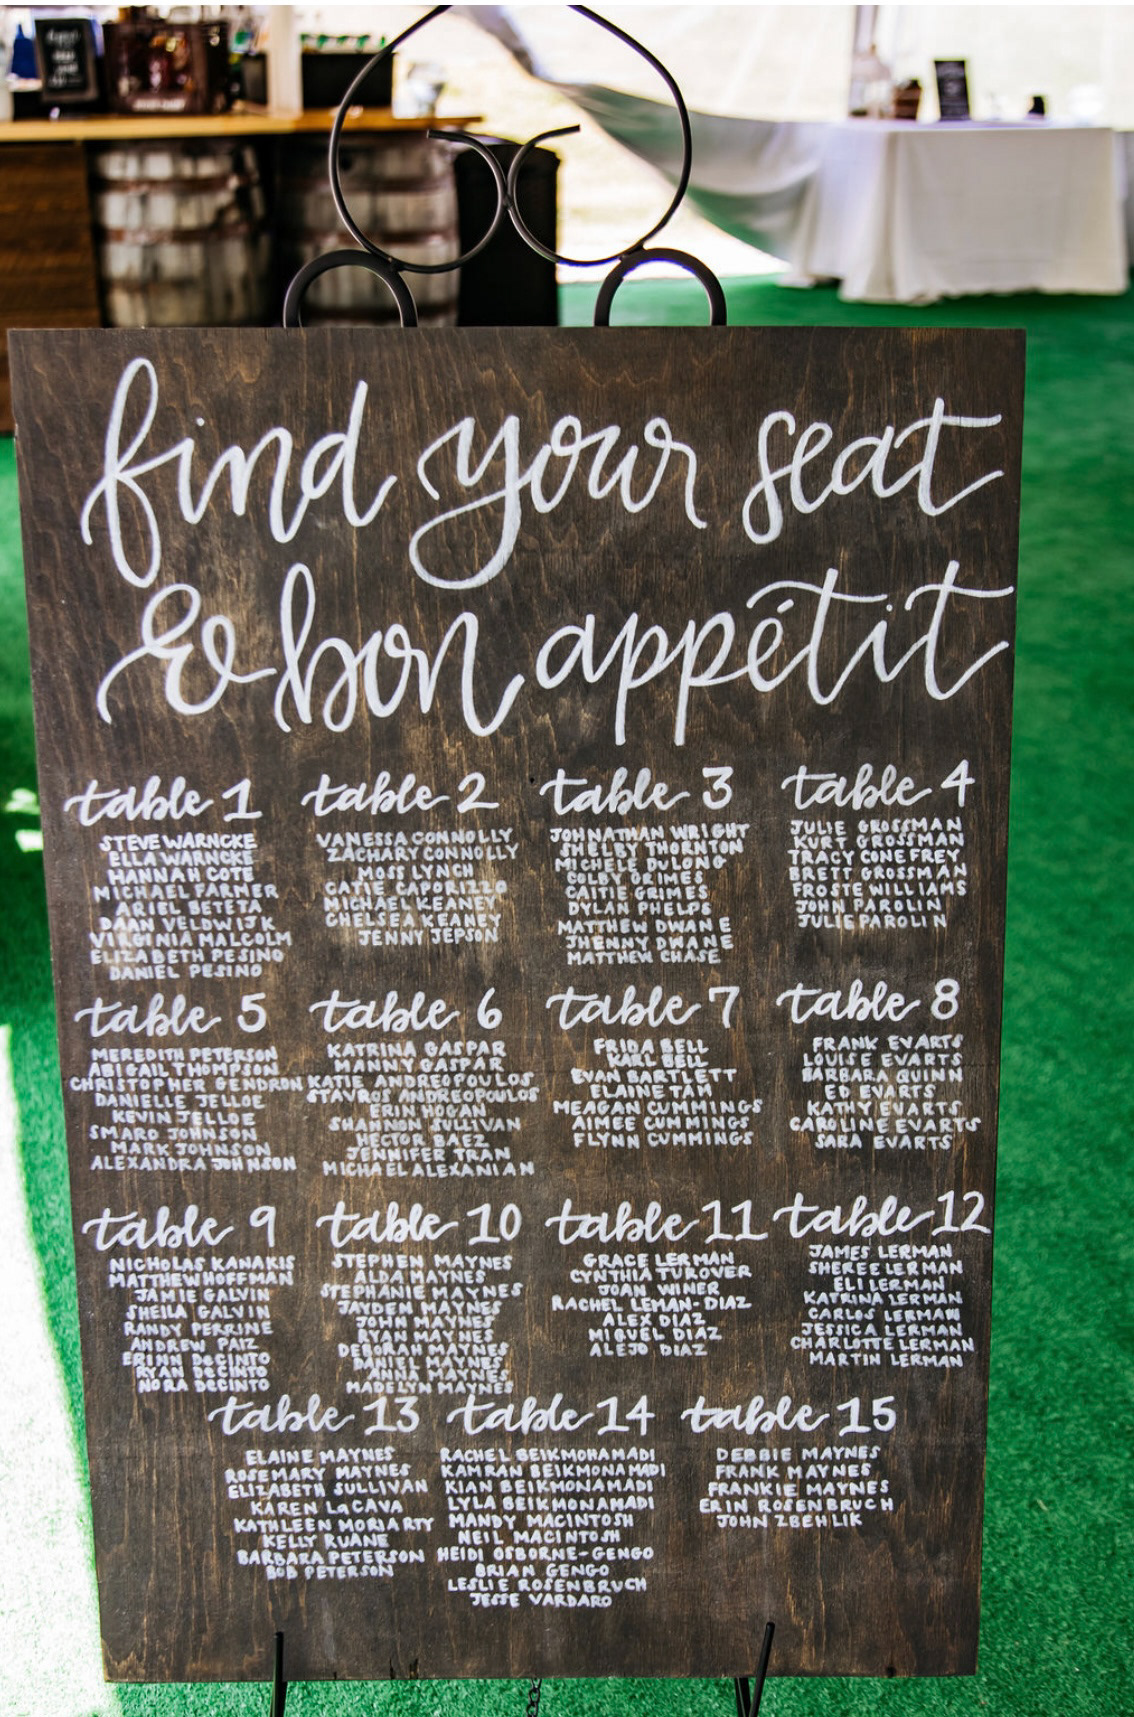 find your seat
& bon appétit
table 1
STEVE WARNCKE
ELLA WARNCKE
HANNAH COTE
MICHAEL FARMER
ARIEL BETETA
DAAN VELDWIJK
VIRGINIA MALCOLM
ELIZABETH PESINO
DANIEL PESINO
table 2
VANESSA CONNOLLY
ZACHARY CONNOLLY
MOSS LYNCH
CATIE CAPORIZZO
MICHAEL KEANEY
CHELSEA KEANEY
JENNY JEPSON
table 3
JOHNATHAN WRIGHT
SHELBY THORNTON
MICHELE DULONG
COLBY GRIMES
CAITIE GRIMES
DYLAN PHELPS
MATTHEW DWANE
JHENNY DWANE
MATTHEW CHASE
table 4
JULIE GROSSMAN
KURT GROSSMAN
TRACY CONEFREY
BRETT GROSSMAN
FROSTE WILLIAMS
JOHN PAROLIN
JULIE PAROLIN
table 5
MEREDITH PETERSON
ABIGAIL THOMPSON
CHRISTOPHER GENDRON
DANIELLE JELLOE
KEVIN JELLOE
SMARO JOHNSON
MARK JOHNSON
ALEXANDRA JOHNSON
table 6
KATRINA GASPAR
MANNY GASPAR
KATIE ANDREOPOULOS
STAVROS ANDREOPOULOS
ERIN HOGAN
SHANNON SULLIVAN
HECTOR BAEZ
JENNIFER TRAN
MICHAEL ALEXANIAN
table 7
FRIDA BELL
KARL BELL
EVAN BARTLETT
ELAINE TAM
MEAGAN CUMMINGS
AIMEE CUMMINGS
FLYNN CUMMINGS
table 8
FRANK EVARTS
LOUISE EVARTS
BARBARA QUINN
ED EVARTS
KATHY EVARTS
CAROLINE EVARTS
SARA EVARTS
table 9
NICHOLAS KANAKIS
MATTHEW HOFFMAN
JAMIE GALVIN
SHEILA GALVIN
RANDY PERRINE
ANDREW PAIZ
ERINN DeCINTO
RYAN DeCINTO
NORA DeCINTO
table 10
STEPHEN MAYNES
ALDA MAYNES
STEPHANIE MAYNES
JAYDEN MAYNES
JOHN MAYNES
RYAN MAYNES
DEBORAH MAYNES
DANIEL MAYNES
ANNA MAYNES
MADELYN MAYNES
table 11
GRACE LERMAN
CYNTHIA TUROVER
JOAN WINER
RACHEL LEMAN-DIAZ
ALEX DIAZ
MIGUEL DIAZ
ALEJO DIAZ
table 12
JAMES LERMAN
SHEREE LERMAN
ELI LERMAN
KATRINA LERMAN
CARLOS LERMAN
JESSICA LERMAN
CHARLOTTE LERMAN
MARTIN LERMAN
table 13
ELAINE MAYNES
ROSEMARY MAYNES
ELIZABETH SULLIVAN
KAREN LaCAVA
KATHLEEN MORIARTY
KELLY RUANE
BARBARA PETERSON
BOB PETERSON
table 14
RACHEL BEIKMOHAMADI
KAMRAN BEIKMOHAMADI
KIAN BEIKMOHAMADI
LYLA BEIKMOHAMADI
MANDY MACINTOSH
NEIL MACINTOSH
HEIDI OSBORNE-GENGO
BRIAN GENGO
LESLIE ROSENBRUCH
JESSE VARDARO
table 15
DEBBIE MAYNES
FRANK MAYNES
FRANKIE MAYNES
ERIN ROSENBRUCH
JOHN ZBEHLIK